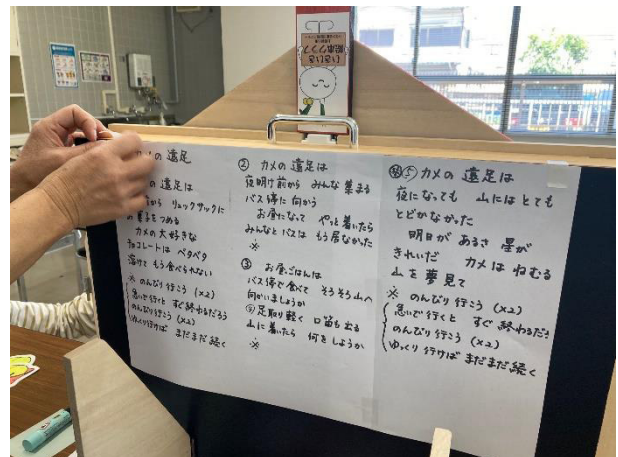 カメの 遠足
の 遠足は
から リュックサックに
お菓子をつめる
カメの大好きな
チョコレートは ベタベタ
溶けて もう食べられない
※ のんびり行こう (×2)
急いで行くと すぐ終わるだろう
のんびり行こう (×2)
ゆっくり行けば まだまだ続く
② カメの 遠足は
夜明け前から みんな集まる
バス停に向かう
お昼になって やっと着いたら
みんなとバスは もう居なかった
※
③ お昼ごはんは
バス停で食べて そろそろ山へ
向かいましょうか
足取り軽く 口笛も出る
山に着いたら 何をしようか
※
⑤ カメの 遠足は
夜になっても 山にはとても
とどかなかった
明日が あるさ 星が
きれいだ カメは ねむる
山を夢見て
※ のんびり行こう (×2)
急いで行くと すぐ終わるだろ
のんびり行こう (×2)
ゆっくり行けば まだまだ続く